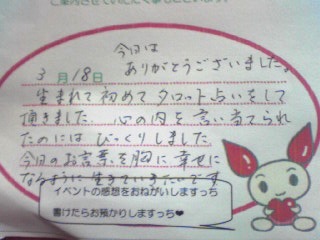 今日は
ありがとうございました。
3月18日
生まれて初めてタロット占いをして
頂きました。心の内を言い当てられ
たのにはびっくりしました
今日のお言葉を胸に幸せに
なるように生きていきたいです
イベントの感想をおねがいしますっち
書けたらお預かりしますっち♥